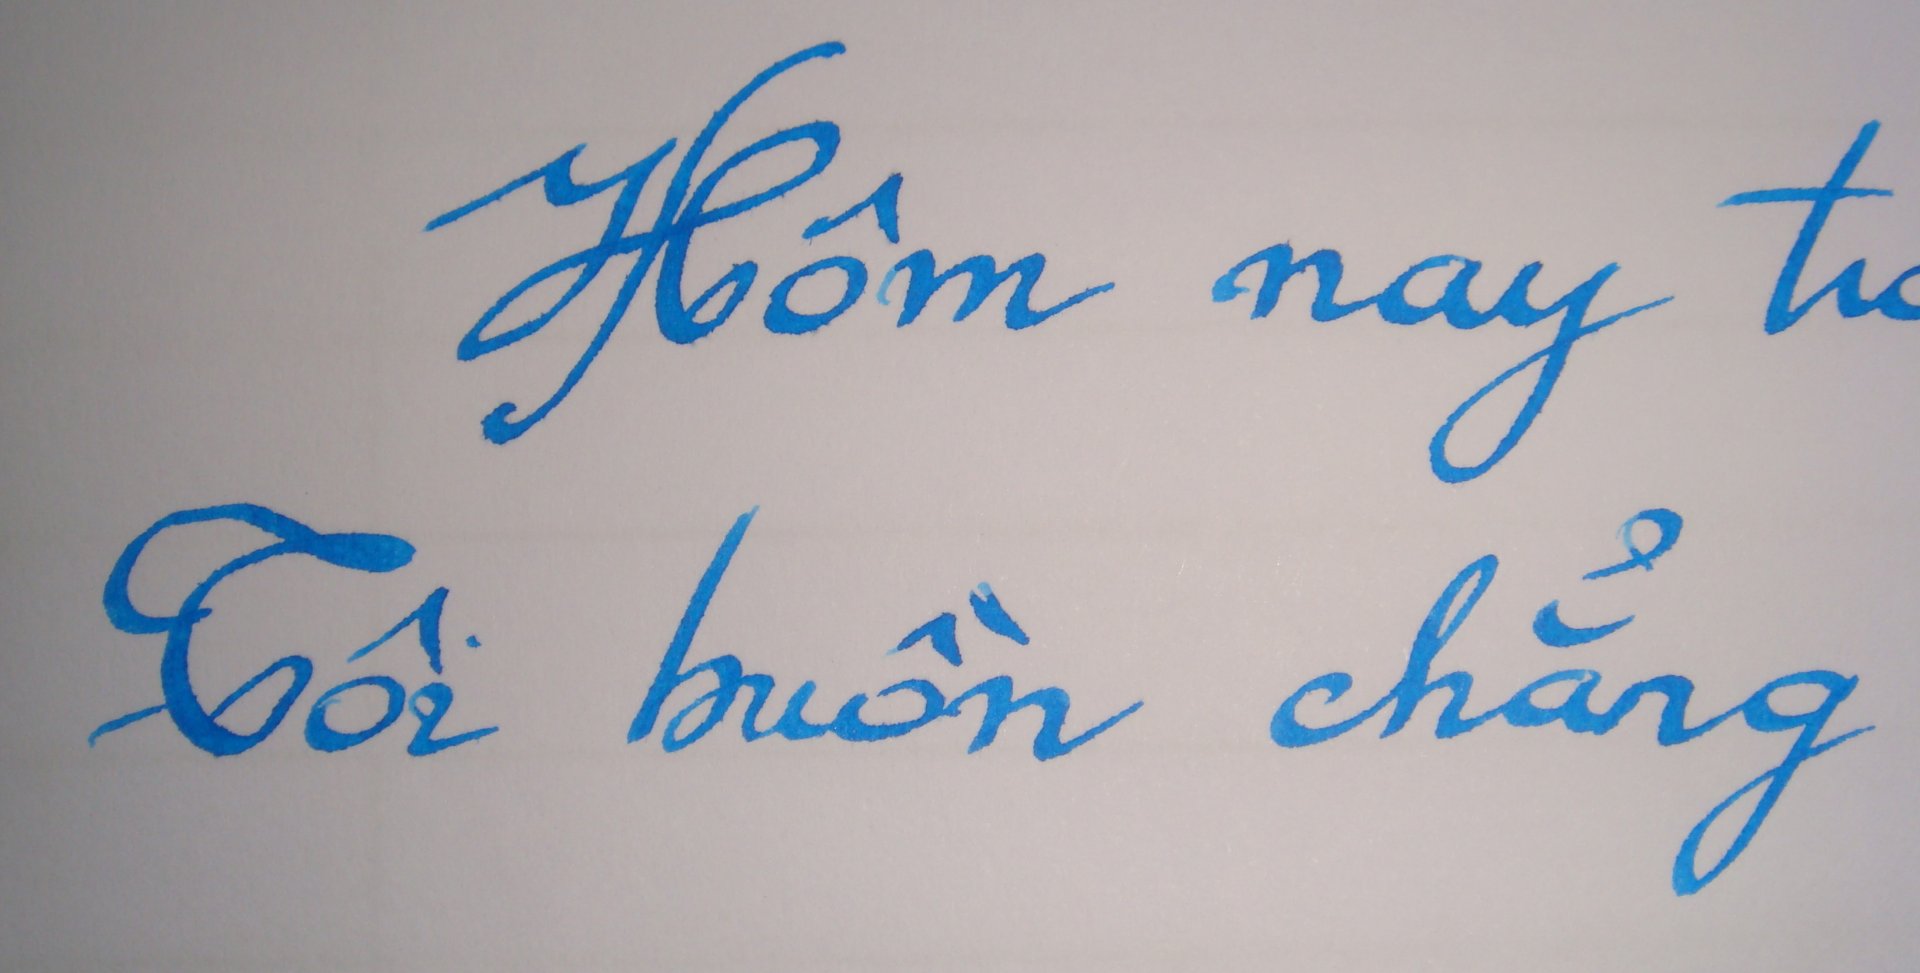 Hôm nay
Tôi buồn chẳng